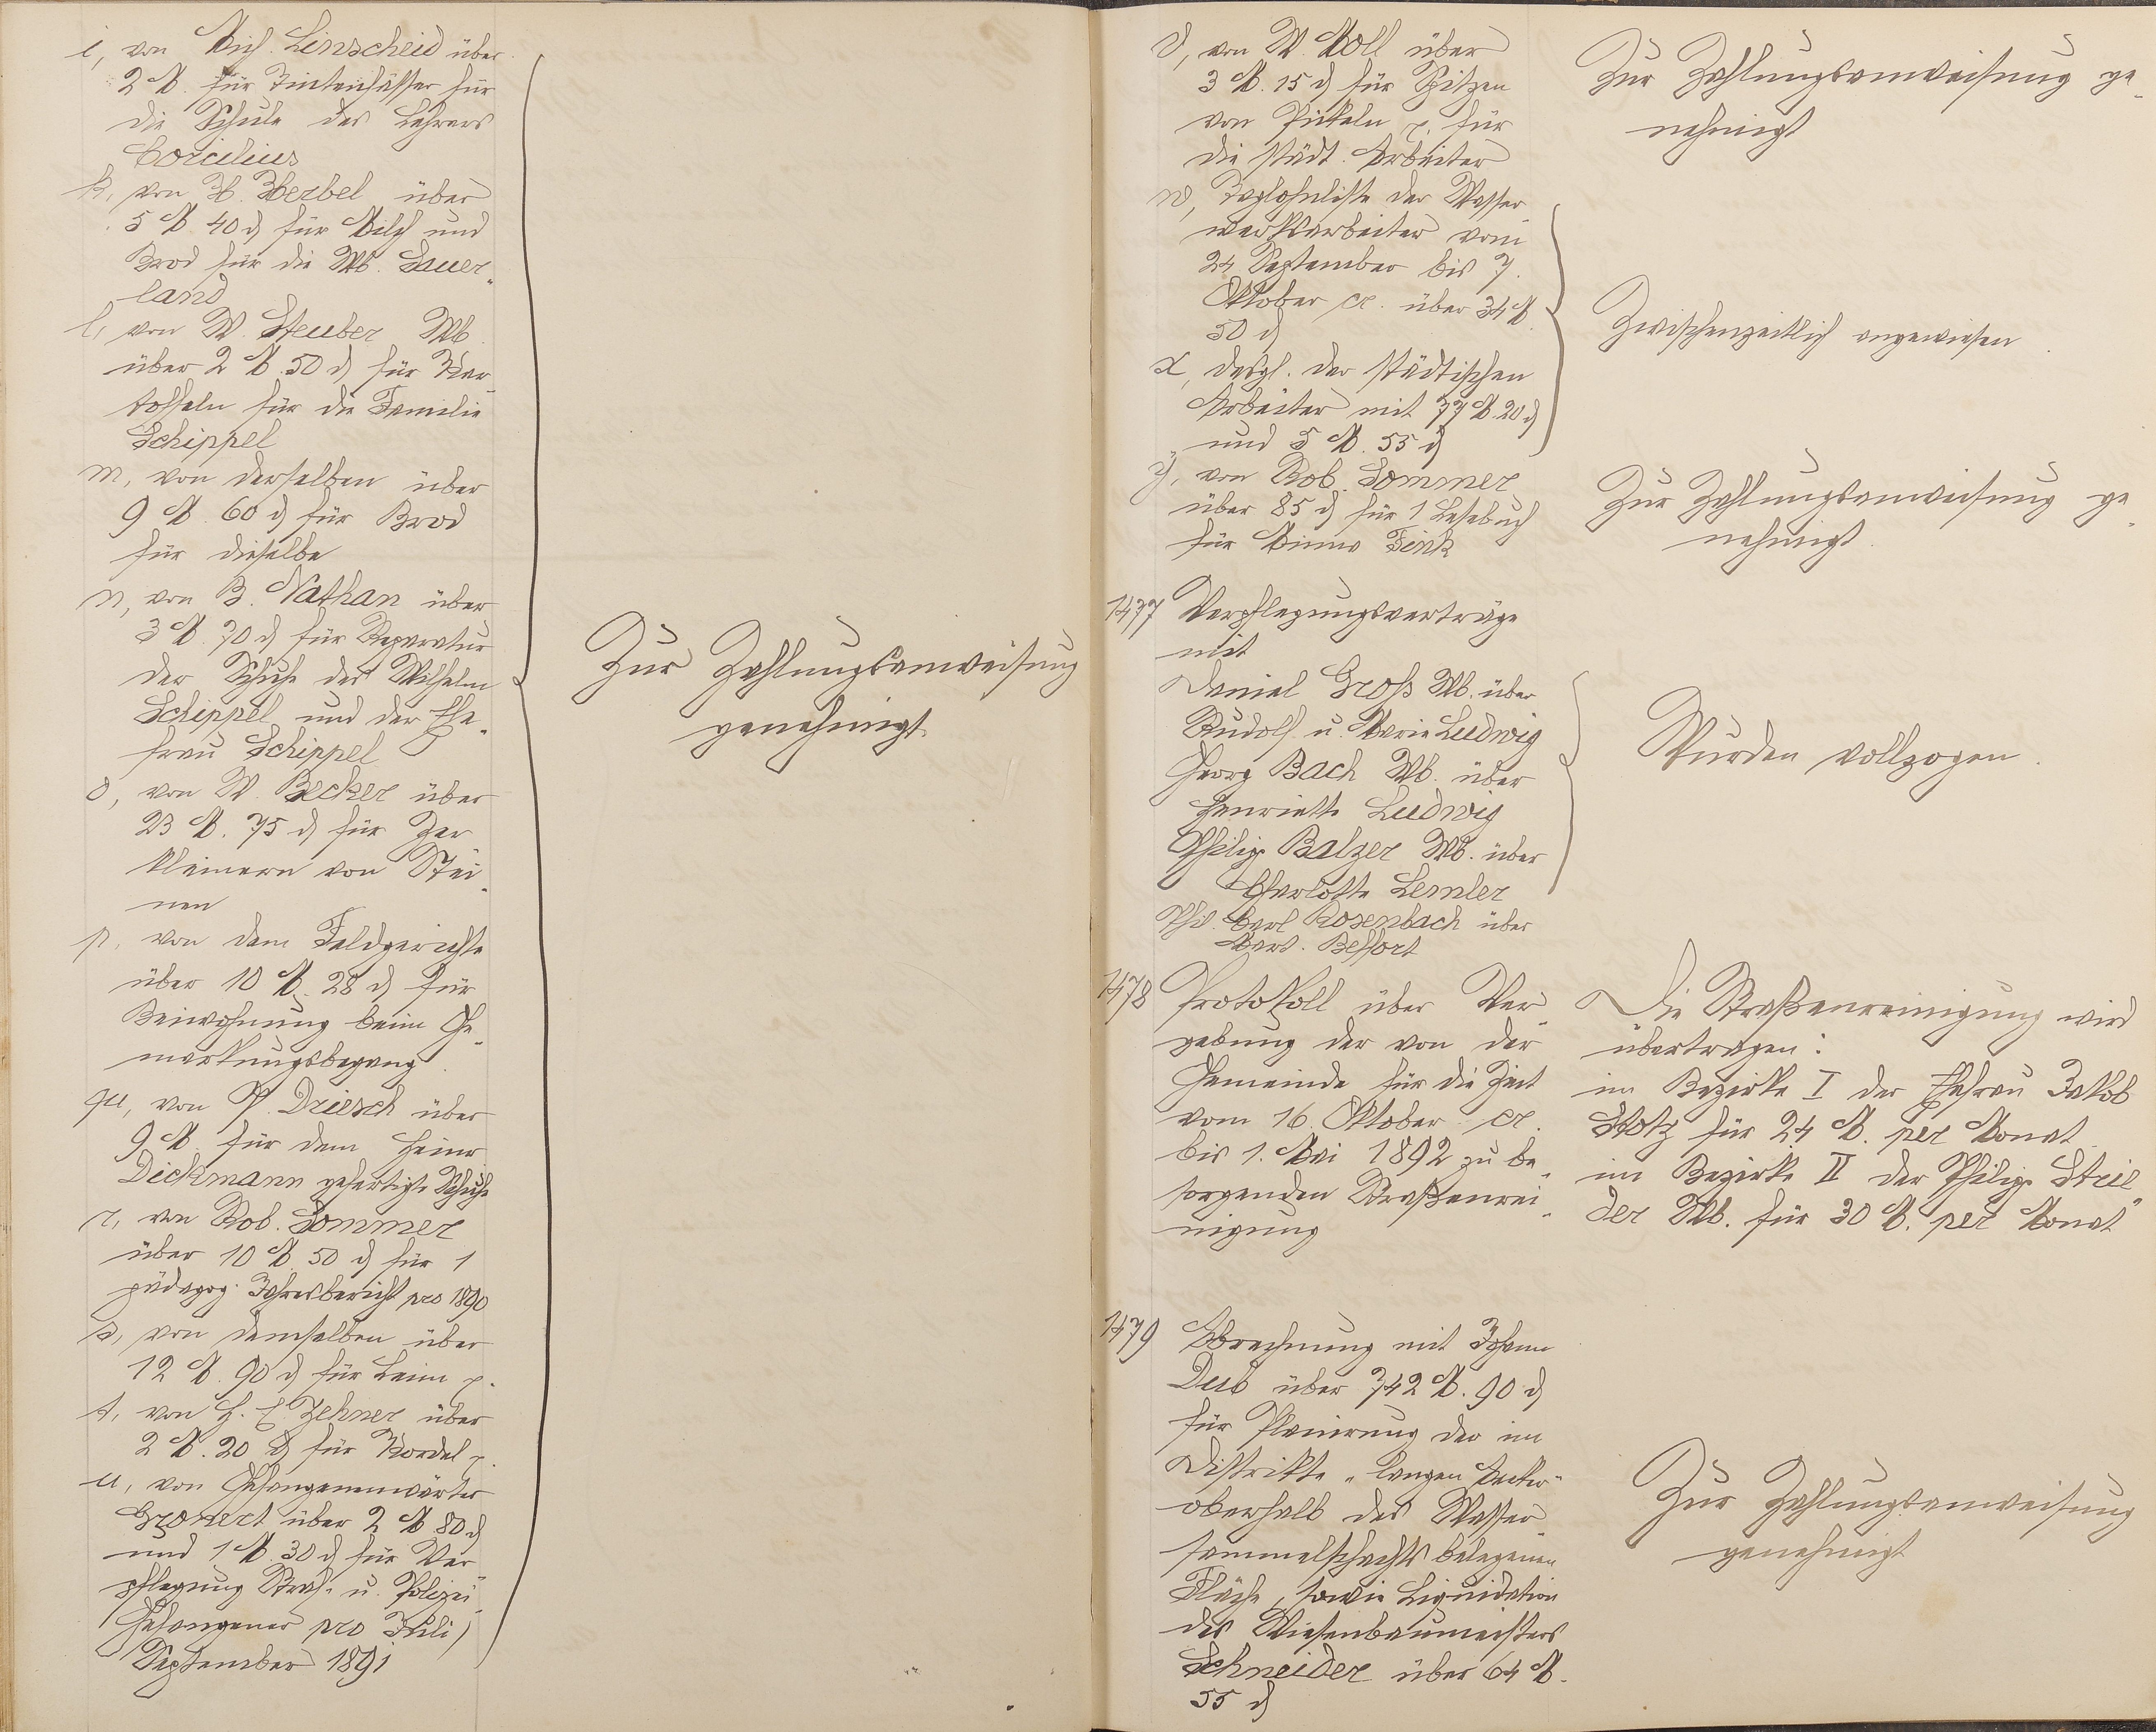 i, von Mich. Linscheid über
2 M. für Tintenfässer für
die Schule des Lehrers
Corcilius
k, von H. Herbel über
5 M 40 d für Milch und
Brod für die Wb. Sauer-
land
l, von W. Steuber Wb.
über 2 M. 50 d für Kar-
toffeln für die Familie
Schippel
m, von derselben über
9 M. 60 d für Brod
für dieselbe
n, von B. Nathan über
3 M. 70 d für Reparatur
der Schuhe des Wilhelm
Schippel und der Ehe-
frau Schippel
o, von W. Becker über
23 M. 75 d für Zer-
kleinern von Stei-
nen
p, von dem Feldgerichte
über 10 M. 28 d für
Beiwohnung beim Ge-
markungsbegang.
qu, von P. Driesch über
9 M. für dem Heinr.
Dickmann gefertigte Schuhe
r, von Rob. Sommer
über 10 M. 50 d für 1
pädagog. Jahresbericht pro 1890
s, von demselben über
12 M. 90 d für Leim p.
t, von H. C. Zehner über
2 M. 20 d für Kordel p.
u, von Gefangenenwärter
Gronert über 2 M 80 d
und 1 M. 30 d für Ver-
pflegung Straf- u. Polizei-
Gefangener pro Juli/
September 1891
Zur Zahlungsanweisung
genehmigt
v, von W. Moll über
3 M. 15 d für Spitzen
von Pickeln p. für
die städt. Arbeiter
Zur Zahlungsanweisung ge-
nehmigt
w, Taglohnliste der Wasser-
werksarbeiter vom
24 September bis 7.
Oktober cr. über 34 M.
50 d
x, desgl. der städtischen
Arbeiter mit 77 M. 20 d
und 5 M. 55 d
Zwischenzeitlich angewiesen.
y, von Rob. Sommer
über 85 d für 1 Lesebuch
für Minna Fink
Zur Zahlungsanweisung ge-
nehmigt.
1477 Verpflegungsverträge
mit
Daniel Groß Wb. über
Rudolf u. Marie Ludwig
Georg Bach Wb. über
Henriette Ludwig
Philip Balzer Wb. über
Charlotte Lemler
Phil. Carl Rosenbach über
Bert. Belfort
Wurden vollzogen.
1478 Protokoll über Ver-
gebung der von der
Gemeinde für die Zeit
vom 16. Oktober cr.
bis 1. Mai 1892 zu be-
sorgenden Straßenrei-
nigung
Die Straßenreinigung wird
übertragen:
im Bezirke I der Ehefrau Jakob
Stotz für 24 M. per Monat
im Bezirke II der Philip Strie-
der Wb. für 30 M. per Monat
1479 Abrechnung mit Johann
Deub über 742 M. 90 d
für Planirung der im
Distrikte "langen Acker"
oberhalb des Wasser-
sammelschachts belegenen
Fläche, sowie Liquidation
des Wiesenbaumeisters
Schneider über 64 M.
55 d
Zur Zahlungsanweisung
genehmigt